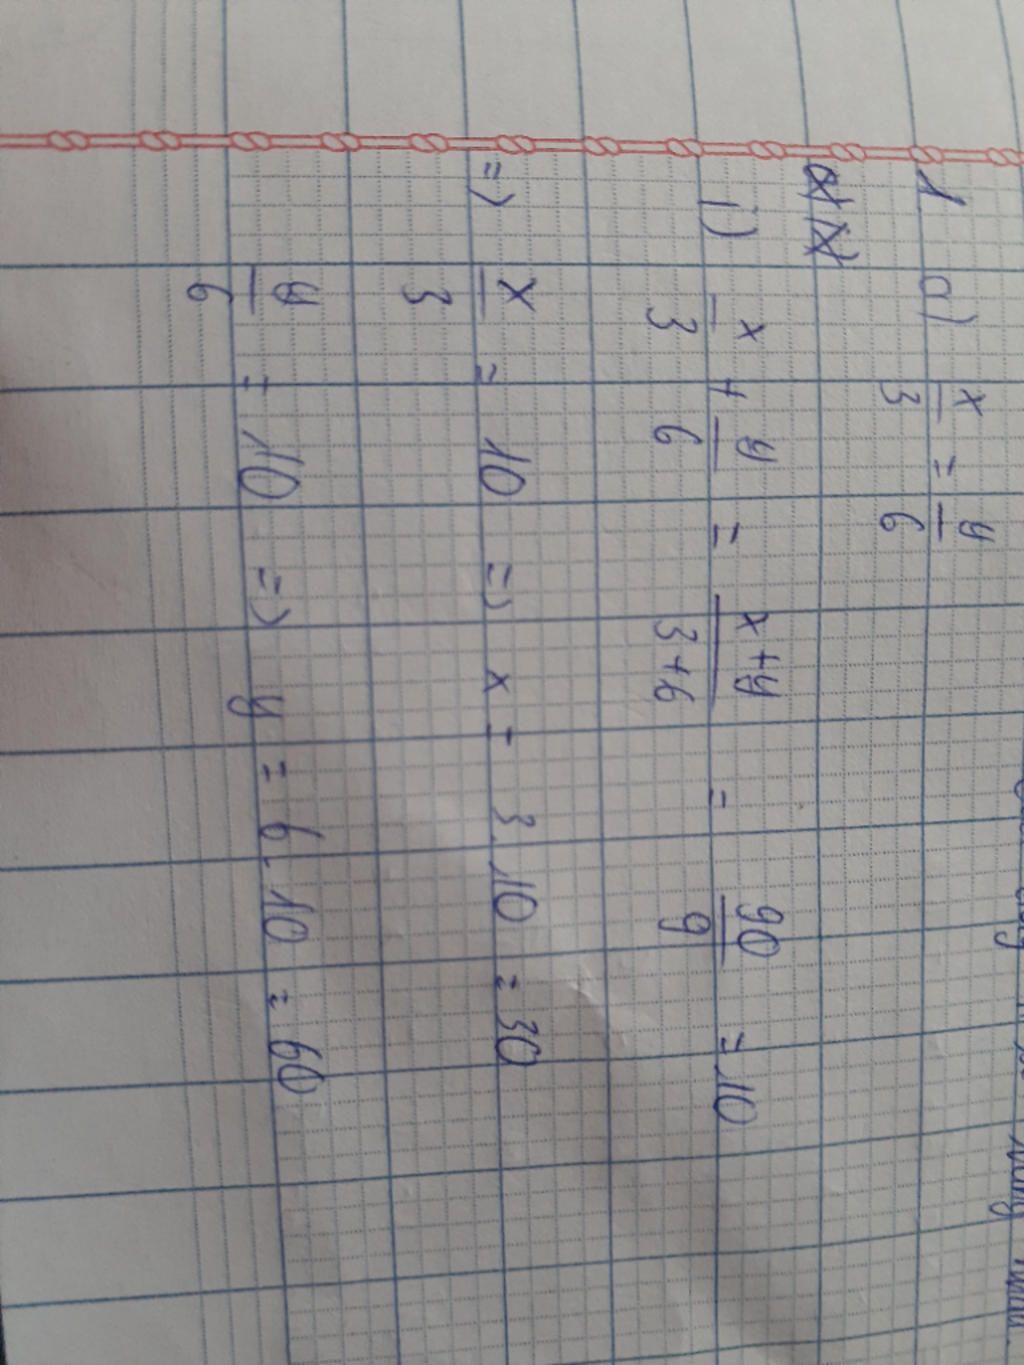 1 a) x/3 = y/6
i) x/3 + y/6 = x+y/3+6 = 90/9 = 10
=> x/3 = 10 => x = 3.10 = 30
y/6 = 10 => y = 6.10 = 60